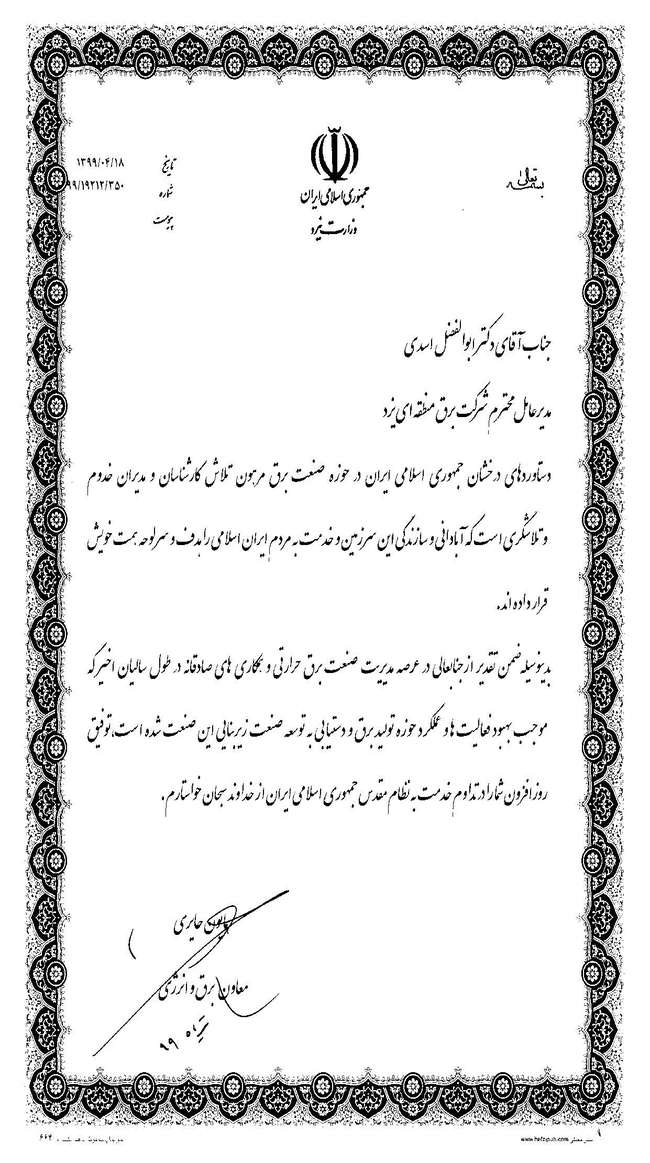 بسمه تعالی
جمهوری اسلامی ایران
وزارت نیرو
تاریخ ۱۳۹۹/۰۴/۱۸
شماره ۹۹/۱۹۲۱۲/۳۵۰
پیوست
جناب آقای دکتر ابوالفضل اسدی
مدیرعامل محترم شرکت برق منطقه ای یزد
دستاوردهای درخشان جمهوری اسلامی ایران در حوزه صنعت برق مرهون تلاش کارشناسان و مدیران خدوم
و تلاشگری است که آبادانی و سازندگی این سرزمین و خدمت به مردم ایران اسلامی را هدف و سرلوحه همت خویش
قرار داده اند.
بدینوسیله ضمن تقدیر از جنابعالی در عرصه مدیریت صنعت برق حرارتی و همکاری های صادقانه در طول سالیان اخیر که
موجب بهبود فعالیت ها و عملکرد حوزه تولید برق و دستیابی به توسعه صنعت زیربنایی این صنعت شده است، توفیق
روزافزون شما را در تداوم خدمت به نظام مقدس جمهوری اسلامی ایران از خداوند سبحان خواستارم.
همایون حایری
معاون برق و انرژی
تیرماه ۹۹
۱
www.hefzipub.com
۶۶۴